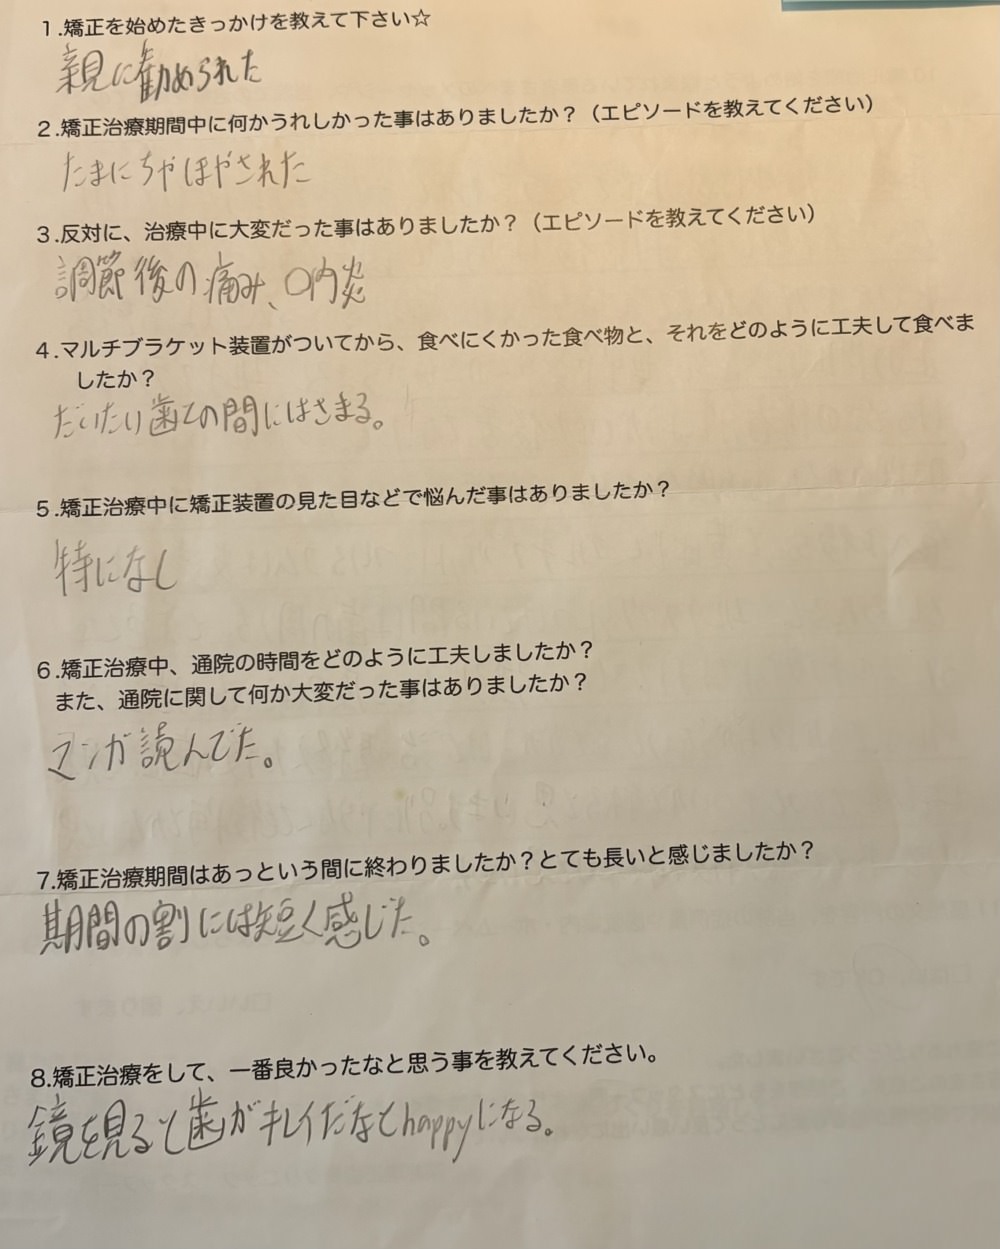 1.矯正を始めたきっかけを教えて下さい☆
親に勧められた
2.矯正治療期間中に何かうれしかった事はありましたか？（エピソードを教えてください）
たまにちやほやされた
3.反対に、治療中に大変だった事はありましたか？（エピソードを教えてください）
調節後の痛み、口内炎
4.マルチブラケット装置がついてから、食べにくかった食べ物と、それをどのように工夫して食べま
したか？
だいたい歯との間にはさまる。
5.矯正治療中に矯正装置の見た目などで悩んだ事はありましたか？
特になし
6.矯正治療中、通院の時間をどのように工夫しましたか？
また、通院に関して何か大変だった事はありましたか？
マンガ読んでた。
7.矯正治療期間はあっという間に終わりましたか？とても長いと感じましたか？
期間の割には短く感じた。
8.矯正治療をして、一番良かったなと思う事を教えてください。
鏡を見ると歯がキレイだなとhappyになる。